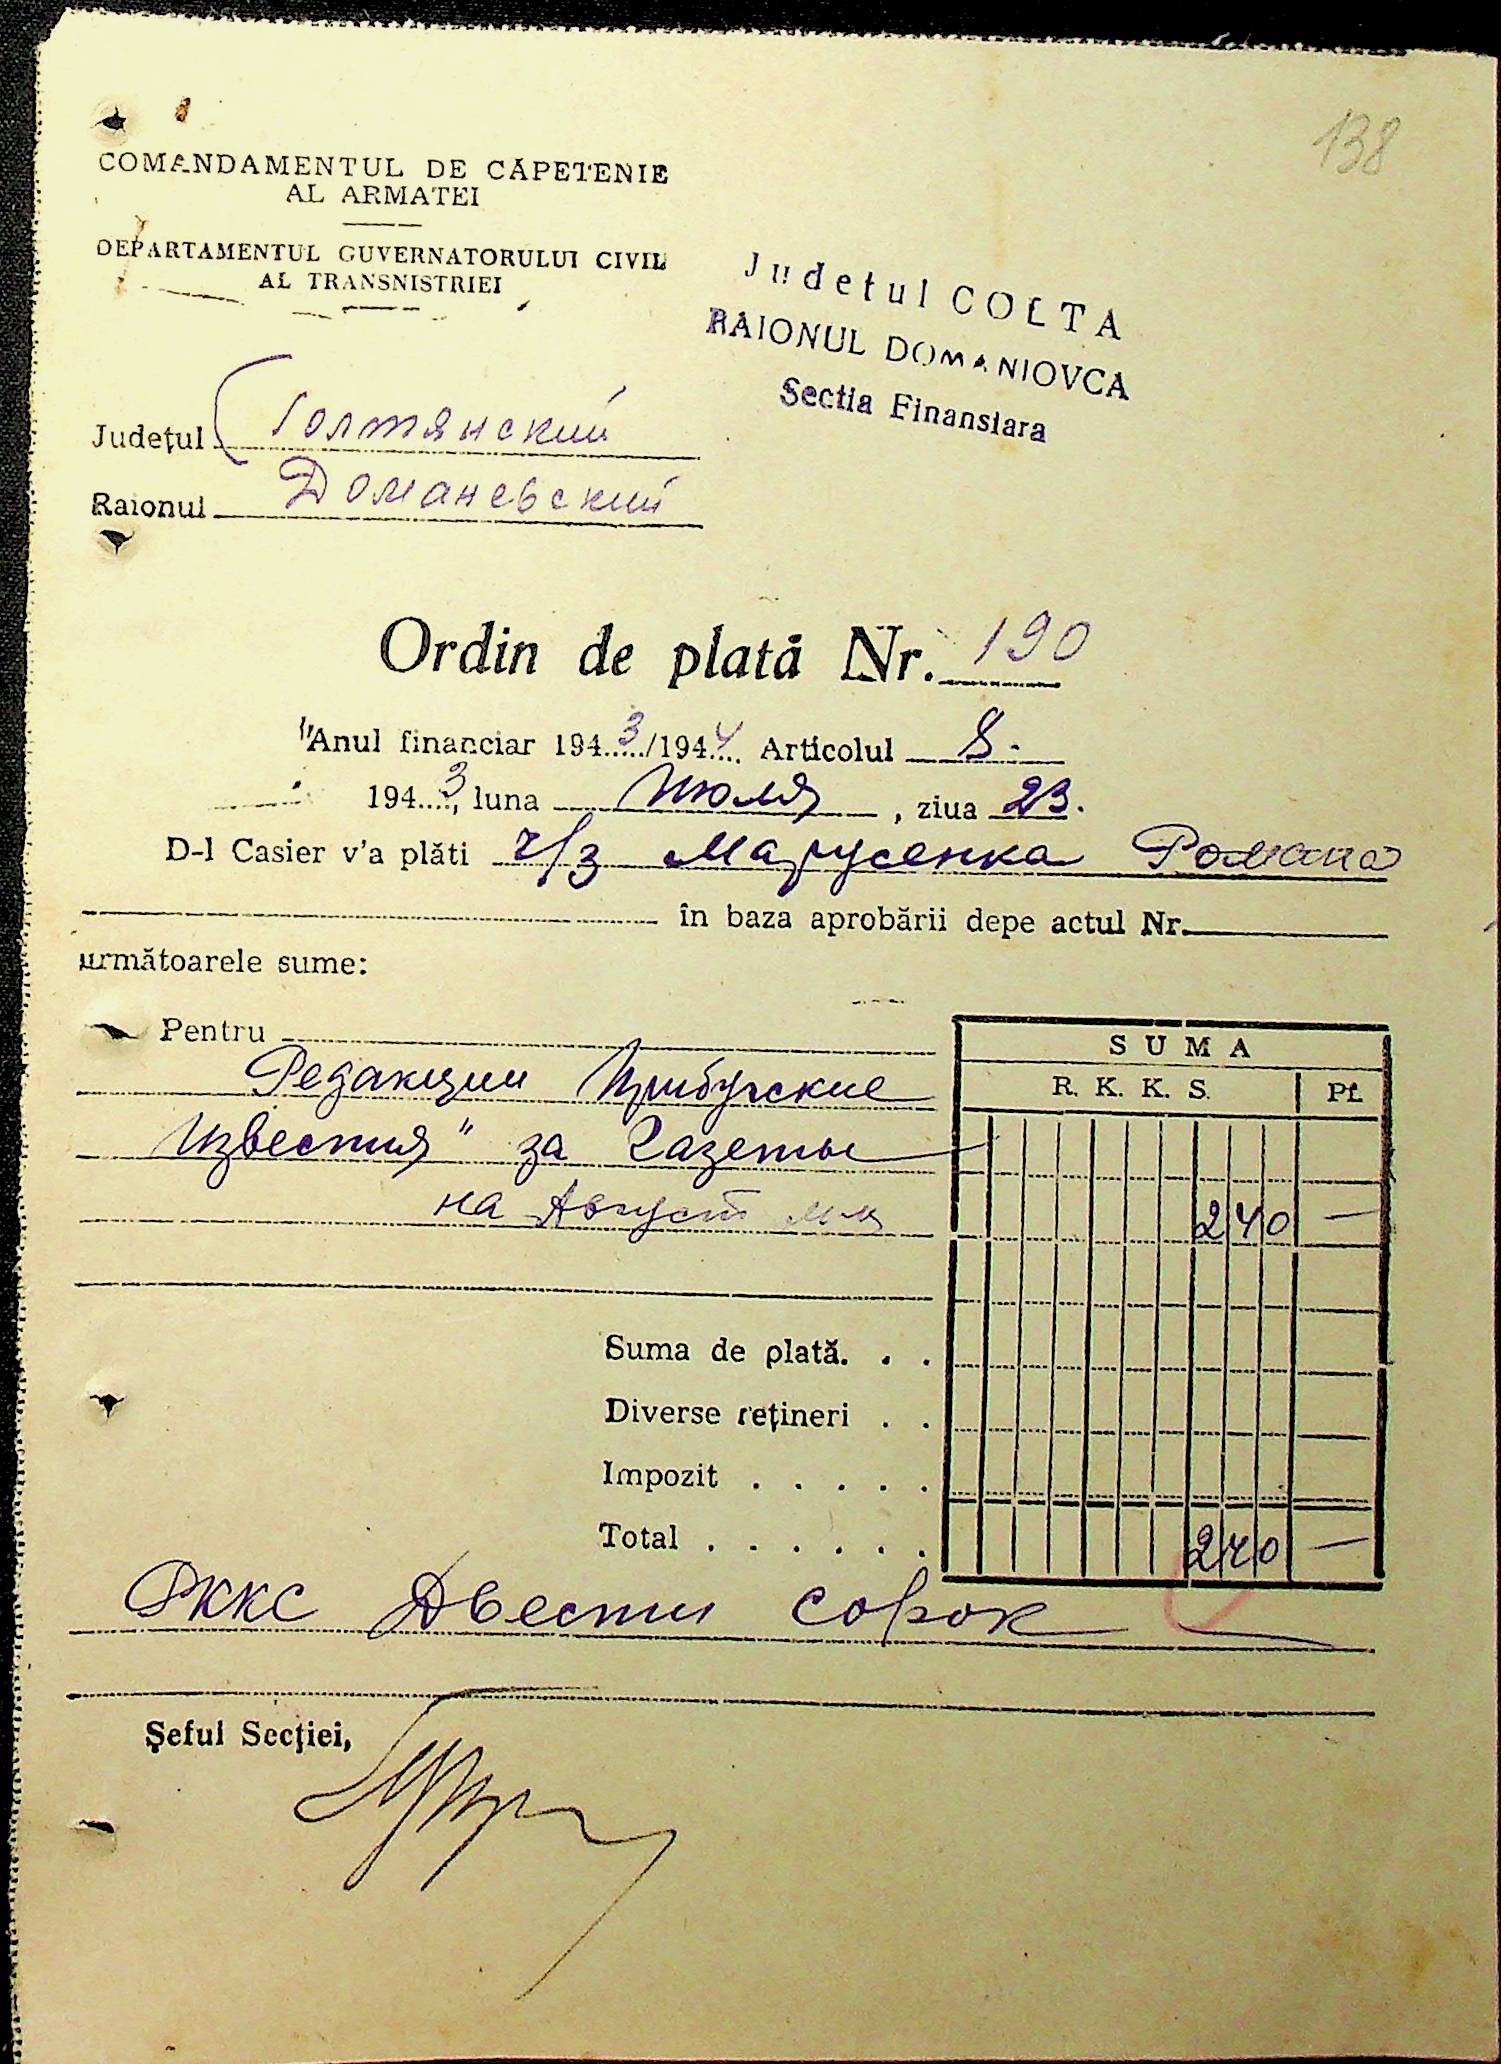 138
COMANDAMENTUL DE CAPETENIE
AL ARMATEI
DEPARTAMENTUL GUVERNATORULUI CIVIL
AL TRANSNISTRIEI
Judetul GOLTA
RAIONUL DOMANIOVCA
Sectia Finansiara
Județul Голтянский
Raionul Доманевский
Ordin de plată Nr. 190
Anul financiar 1943/1944 Articolul 8.
1943, luna Июля, ziua 23.
D-l Casier v'a plăti ч/з Марусенка Романа
în baza aprobării depe actul Nr.
următoarele sume:
Pentru
SUMA
R. K. K. S. Pf.
Редакции Прибугские
Известия" за газеты
на Август м-ц 240 —
Suma de plată. . .
Diverse rețineri . .
Impozit . . . . .
Total . . . . . . 240 —
РККС Двести сорок
Șeful Secției,